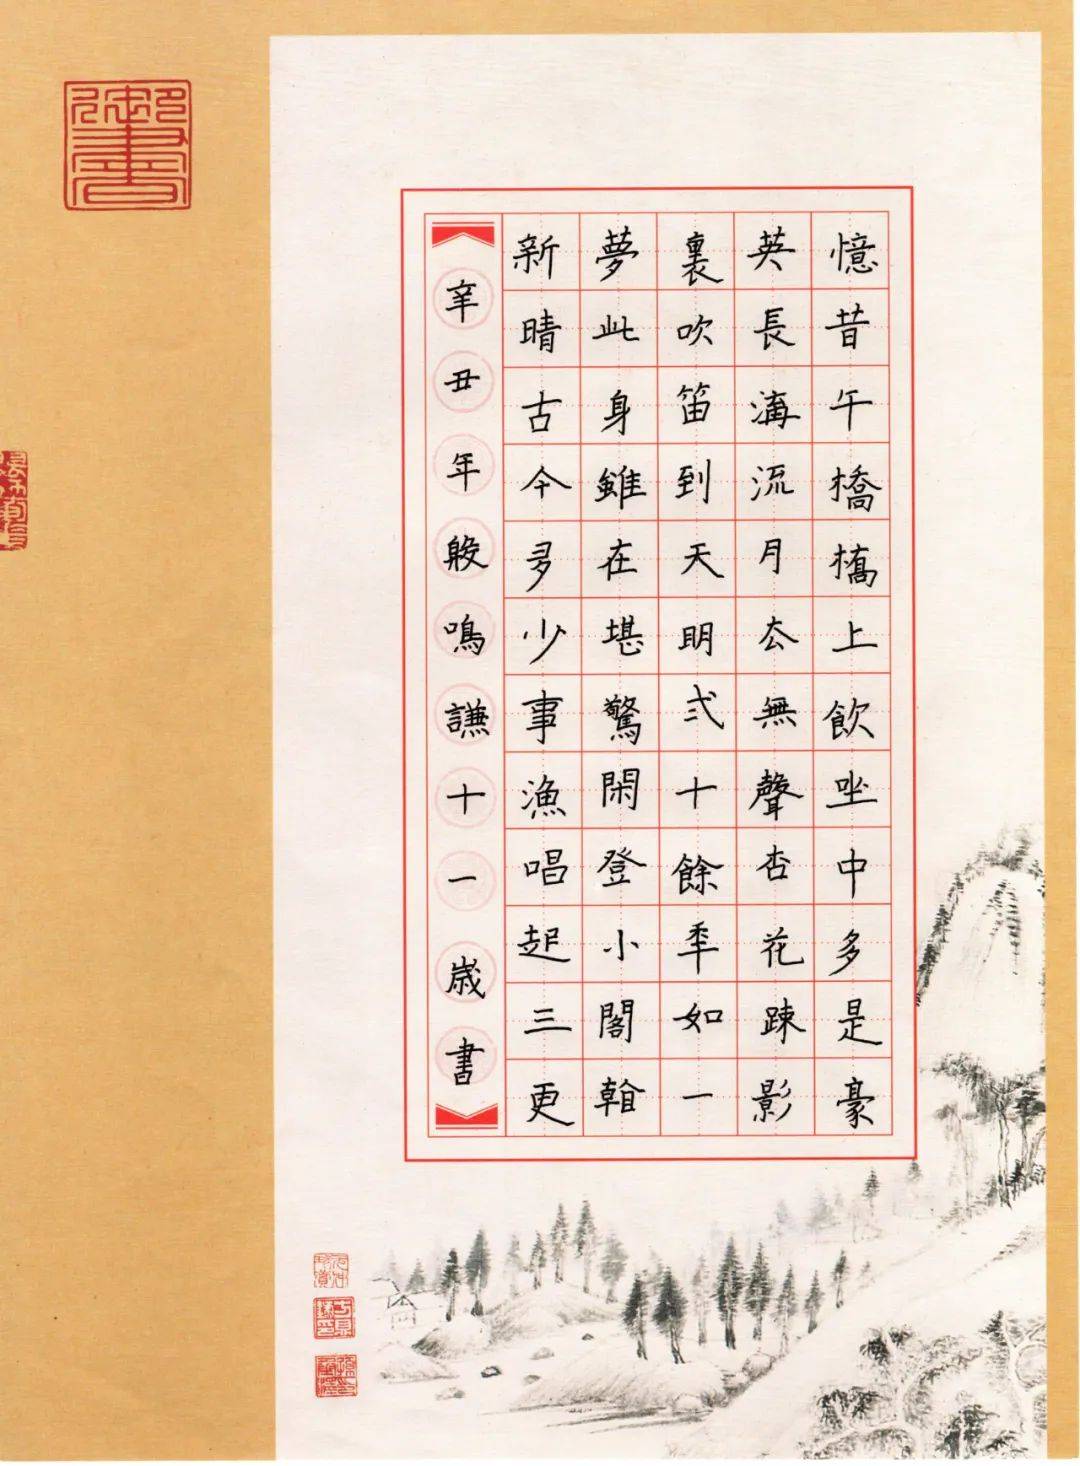 憶昔午橋橋上飲坐中多是豪
英長溝流月去無聲杏花疎影
裏吹笛到天明弍十餘年如一
夢此身雖在堪驚閑登小閣看
新晴古今多少事漁唱起三更
辛丑年殷鳴謙十一歲書